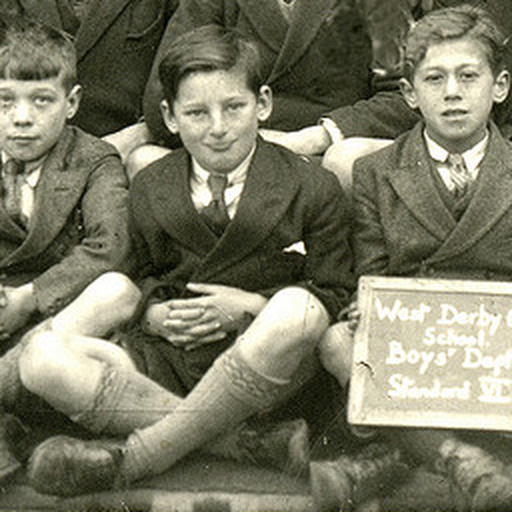 West Derby
School.
Boys' Dept
Standard VI